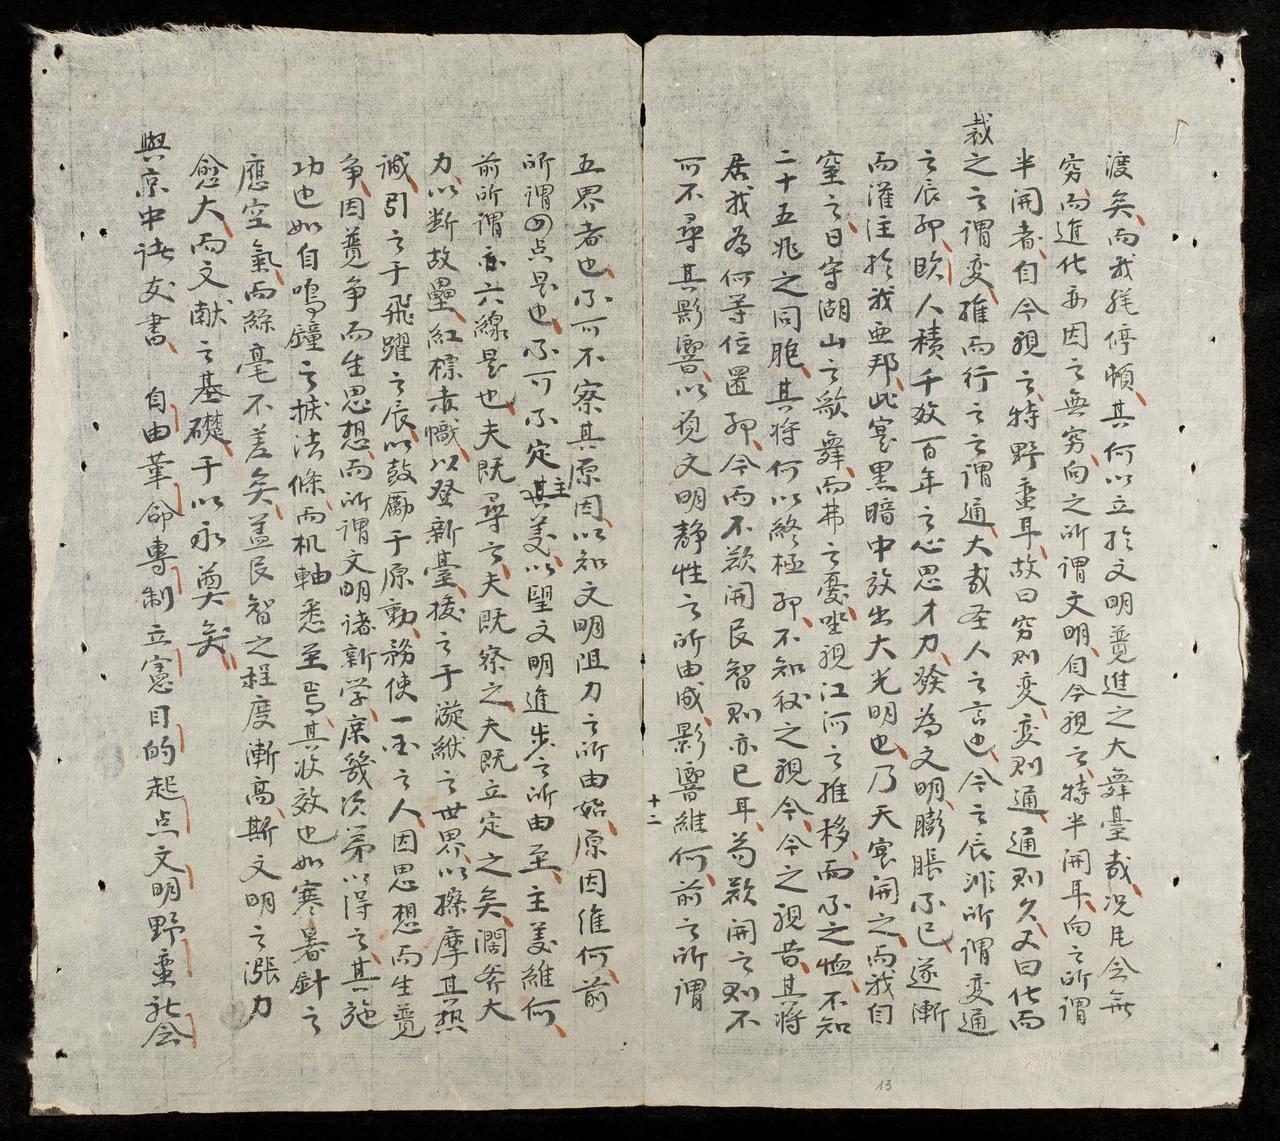 渡矣而我猶停頓其何以立於文明競進之大舞臺哉况民会無
窮而進化亦因之無窮向之所謂文明自今視之特半開耳向之所謂
半開者自今視之特野蛮耳故曰穷則变变則通通則久又曰化而
裁之之謂变推而行之之謂通大哉圣人之言也今之辰非所謂变通
之辰耶欧人積千数百年之心思才力發為文明膨脹不已遂漸
而灌注於我亜邦此寔黒暗中放出大光明也乃天寔開之而我自
窒之日守湖山之歌舞而弗之憂坐視江河之推移而不之恤不知
二十五兆之同胞其将何以終極耶不知後之視今今之視昔其將
居我為何等位置耶今而不欲開民智則亦已耳苟欲開之則不
可不尋其影響以覓文明靜性之所由成影響維何前之所謂
十二
五界者也不可不察其原因以知文明阻力之所由始原因維何前
所謂四点是也不可不定其主義以望文明進步之所由至主義維何
前所謂六線是也夫既尋之夫既察之夫既立定之矣濶斧大
力以断故壘紅標赤幟以登新臺援之于漩紱之世界以擦摩其熱
誠引之于飛躍之辰以鼓勵于原動務使一国之人因思想而生競
争因競争而生思想而所謂文明諸新学庶幾次第以得之其施
功也如自鳴鐘之捩法條而机軸悉至焉其收效也如寒暑針之
應空氣而絲毫不差矣盖民智之程度漸高斯文明之漲力
愈大而文献之基礎于以永奠矣
與京中諸友書 自由革命專制立憲目的起点文明野蛮社会
13